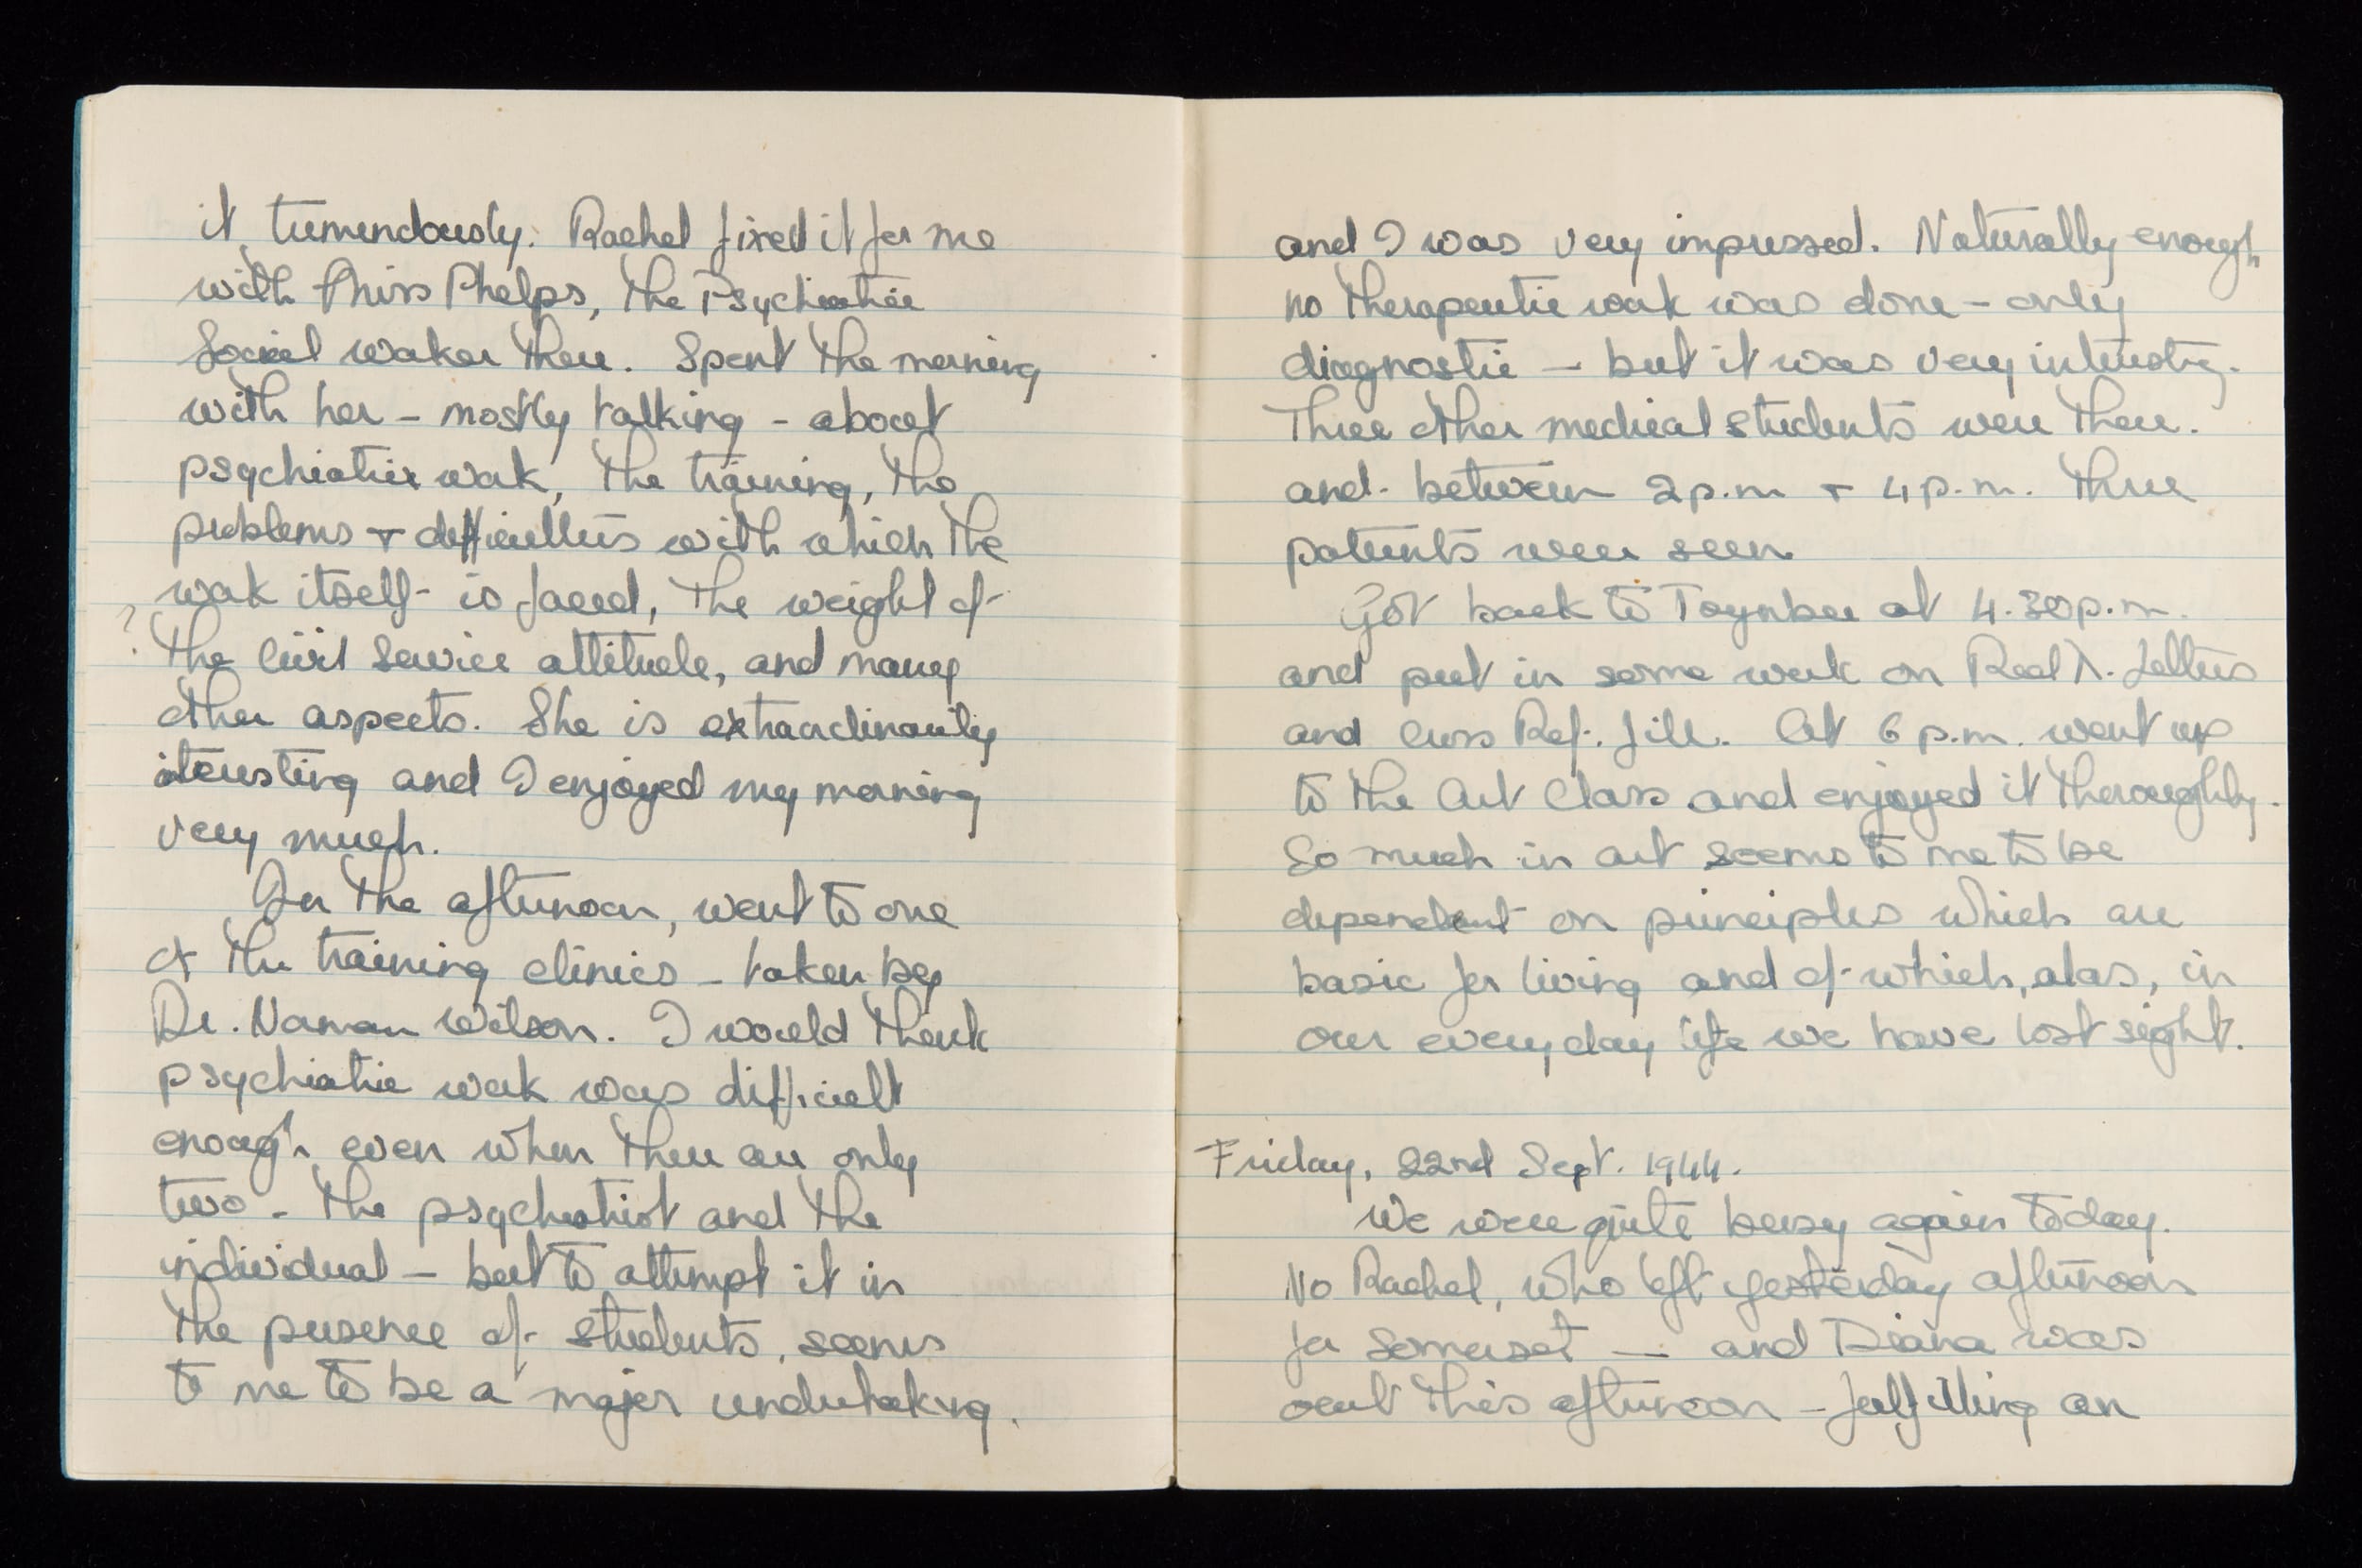 it tremendously. Rachel fixed it for me
with Miss Phelps, the Psychiatric
Social worker there. Spent the morning
with her – mostly talking – about
psychiatric work, the training, the
problems + difficulties with which the
work itself is faced, the weight of
? the Civil Service attitude, and many
other aspects. She is extraordinarily
interesting and I enjoyed my morning
very much.
In the afternoon, went to one
of the training clinics – taken by
Dr. Norman Wilson. I would think
psychiatric work was difficult
enough even when there are only
two – the psychiatrist and the
individual – but to attempt it in
the presence of students, seems
to me to be a major undertaking.
and I was very impressed. Naturally enough
no therapeutic work was done – only
diagnostic – but it was very interesting.
Three other medical students were there.
and between 2 p.m + 4 p.m. three
patients were seen.
Got back to Toynbee at 4.30 p.m.
and put in some work on Red X. Letters
and Cross Ref. fill. At 6 p.m. went up
to the Art Class and enjoyed it thoroughly.
So much in art seems to me to be
dependent on principles which are
basic for living and of which, alas, in
our everyday life we have lost sight.
Friday, 22nd Sept. 1944.
We were quite busy again today.
No Rachel, who left yesterday afternoon
for Somerset — and Diana was
out this afternoon – fulfilling an